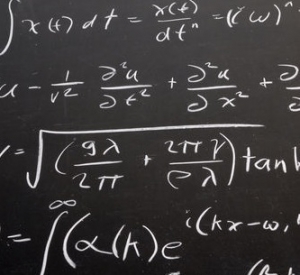 ∫ x(t) dt = x(t)/dtⁿ = (i ω)ⁿ
u - 1/v² ∂²u/∂t² + ∂²u/∂x² + ∂
= √(gλ/2π + 2πγ/ρλ) tanh
= ∫^∞ (α(k) e^i(kx-ω,